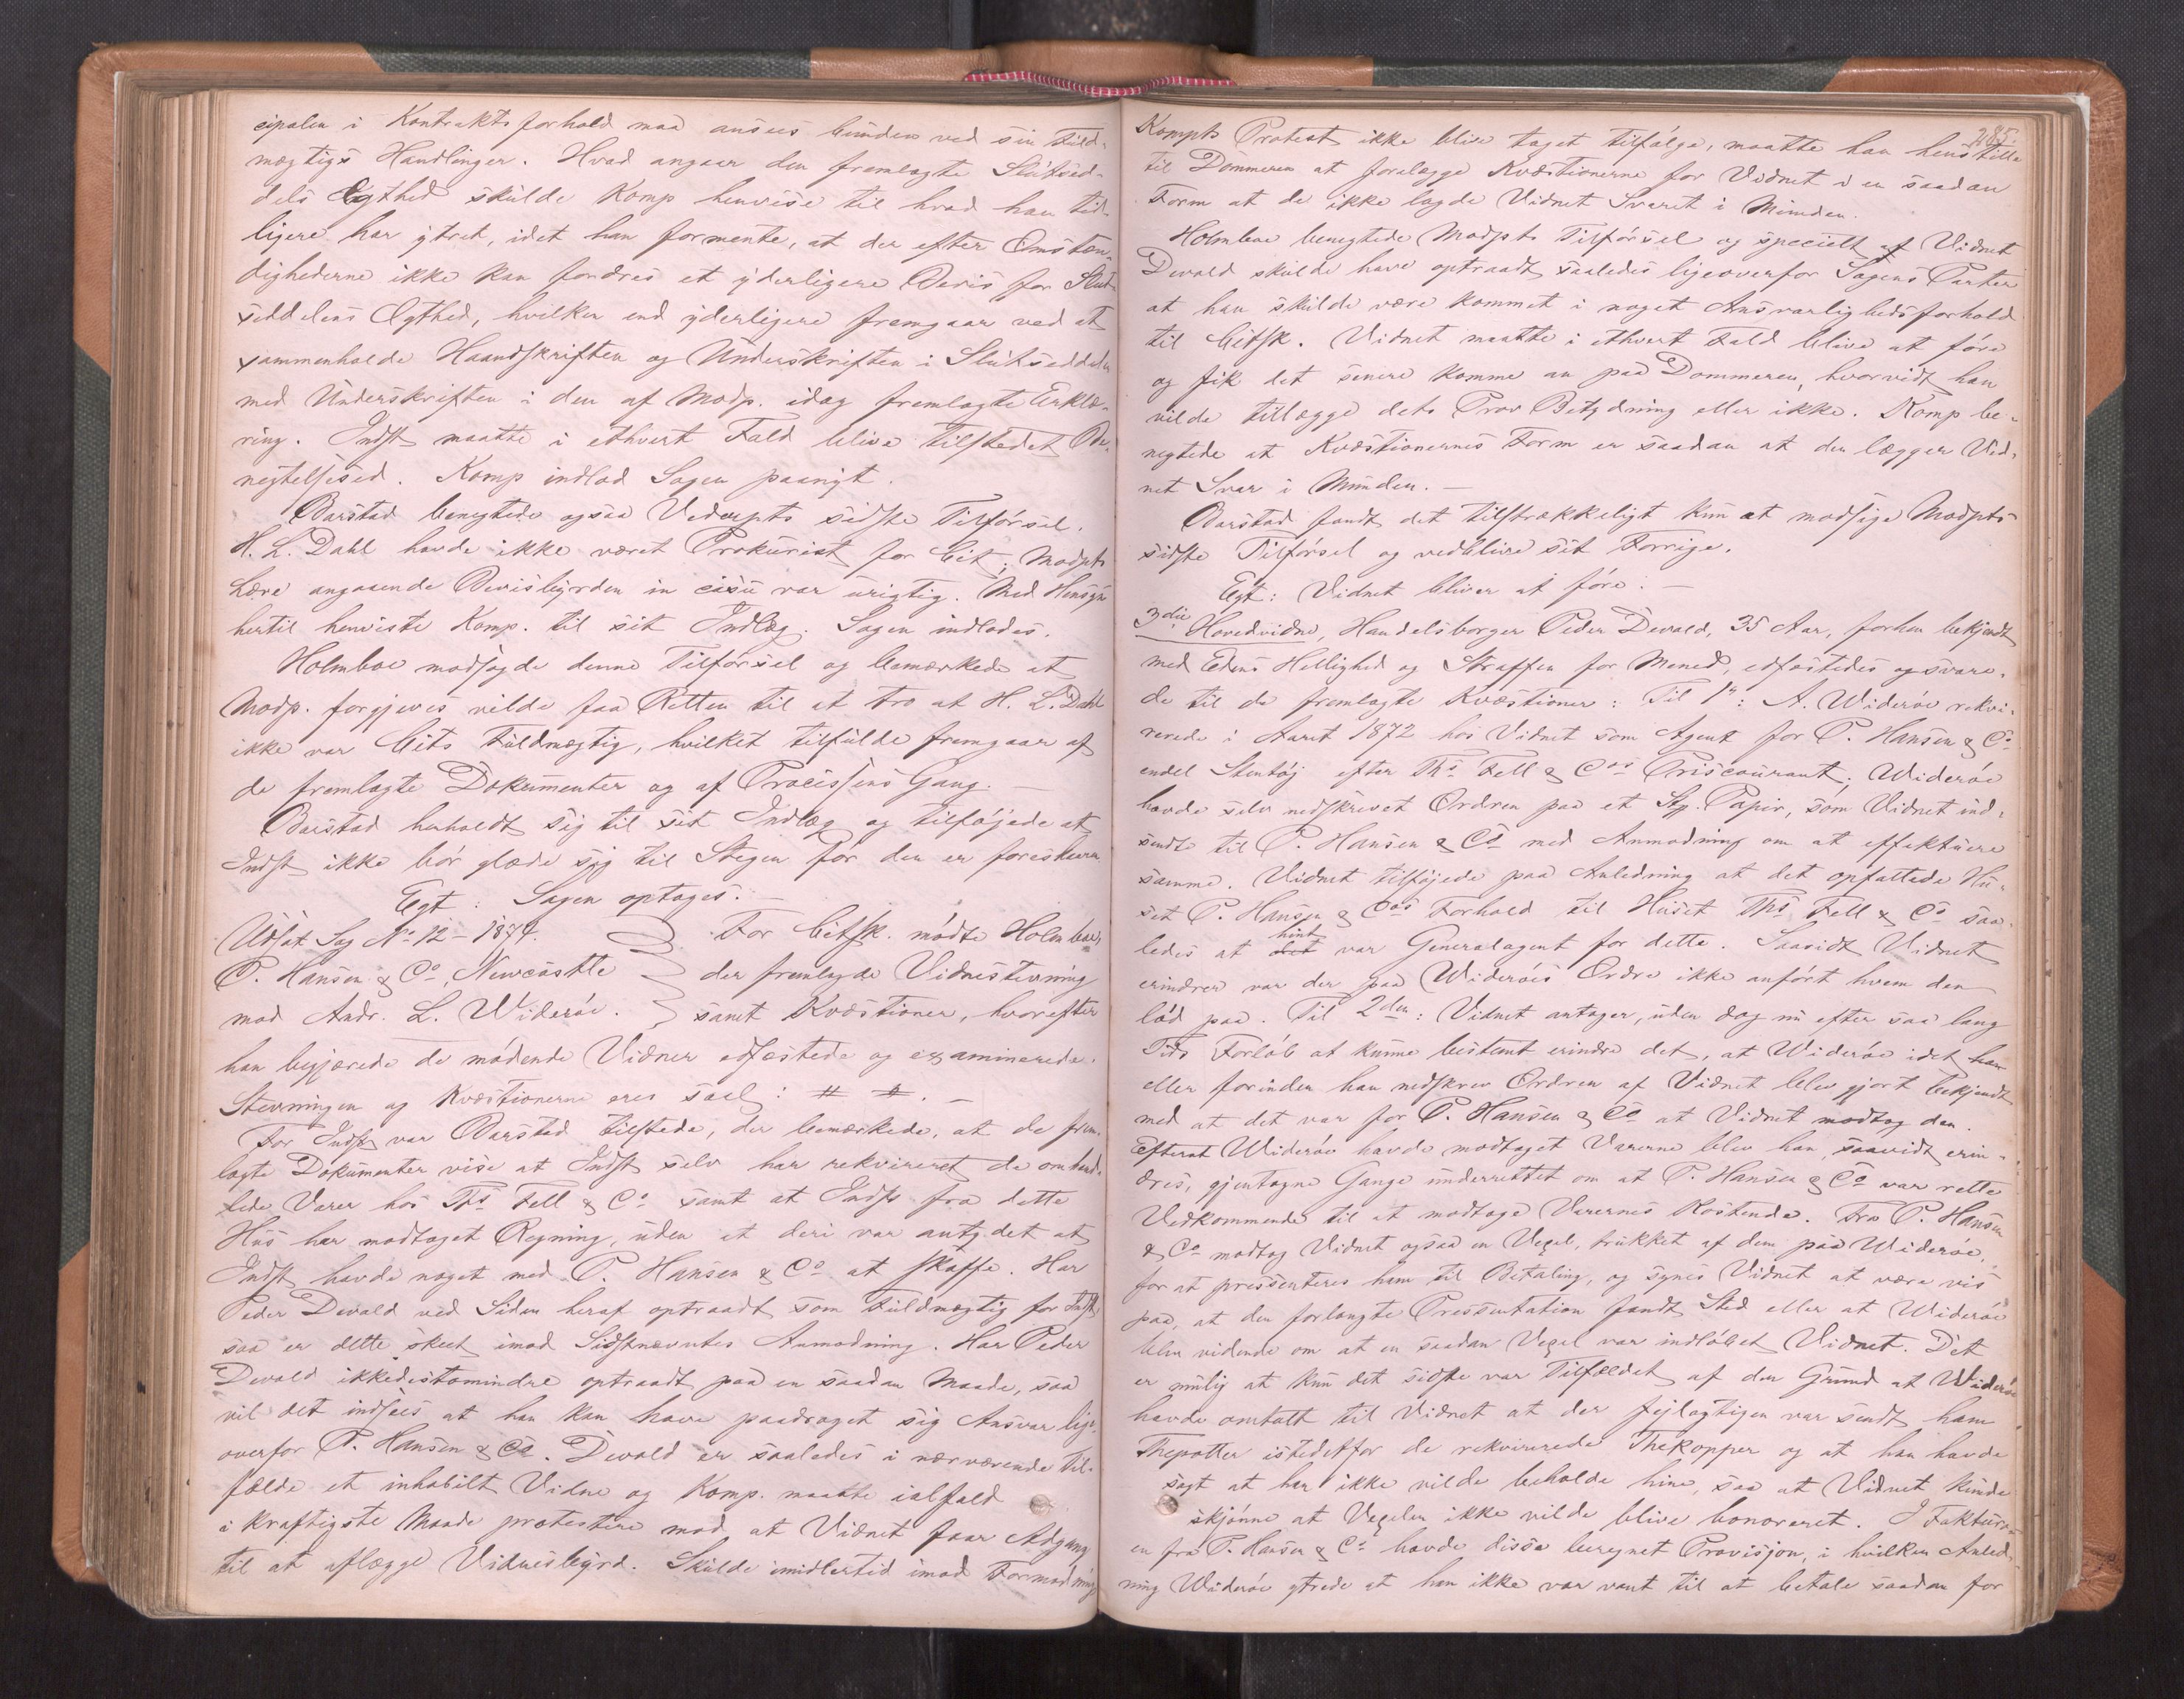 cipalen i Kontraktsforhold maa ansees bunden ved sin Fuld-
mægtigs Handlinger. Hvad angaar den fremlagte Slutsed-
dels Ægthed skulde Komp henvise til hvad han tid-
ligere har ytret, idet han formente, at der efter Omstæn-
dighederne ikke kan fordres et yderligere Bevis for Slut-
seddelens Ægthed, hvilken end yderligere fremgaar ved at
sammenholde Haandskriften og Underskriften i Slutseddelen
med Underskriften i den af Modp. idag fremlagte Erklæ-
ring. Indst maatte i ethvert Fald blive tilstedet Be-
negtelsesed. Komp indlod Sagen paanyt.
Barstad benegtede ogsaa Vederpts sidste Tilførsel.
H. L. Dahl havde ikke været Prokurist for Cit; Modpts
Lære angaaende Bevisbyrden in casu var urigtig. Med Hensyn
hertil henviste Komp. til sit Indlæg. Sagen indlodes.
Holmboe modsagde denne Tilførsel og bemærkede at
Modp. forgjeves vilde faa Retten til at tro at H. L. Dahl
ikke var Cits Fuldmægtig, hvilket tilfulde fremgaar af
de fremlagte Dokumenter og af Processens Gang. —
Barstad henholdt sig til sit Indlæg og tilføjede at
Indst ikke bør glæde sig til Stegen før den er foreskaaren
Egt: Sagen optages. —
Udsat Sag No 12 - 1874. For Citsk. mødte Holmboe,
P. Hansen & Co, Newcastle der fremlagde Vidnestevning
mod Andr. L. Widerøe. samt Kvæstioner, hvorefter
han begjærede de mødende Vidner edfæstede og examinerede.
Stevningen og Kvæstionerne eres saal: # #. —
For Indst var Barstad tilstede, der bemærkede, at de frem-
lagte Dokumenter vise at Indst selv har rekvireret de omhand-
lede Varer hos Ths Fell & Co samt at Indst fra dette
Hus har modtaget Regning, uden at deri var antydet at
Indst havde noget med P. Hansen & Co at skaffe. Har
Peder Devold ved Siden heraf optraadt som Fuldmægtig for Indst,
saa er dette skeet imod Sidstnævntes Anmodning. Har Peder
Devold ikkedestomindre optraadt paa en saadan Maade, saa
vil det indsees at han kan have paadraget sig Ansvar lige-
overfor P. Hansen & Co. Devold er saaledes i nærværende Til-
fælde et inhabilt Vidne og Komp. maatte ialfald
i kraftigste Maade protestere mod at Vidnet faar Adgang
til at aflægge Vidnesbyrd. Skulde imidlertid imod Formodning
285
Kompts Protest ikke blive taget tilfølge, maatte han henstille
til Dommeren at forelægge Kvæstionerne for Vidnet i en saadan
Form at de ikke lagde Vidnet Svaret i Munden.
Holmboe benegtede Modpts Tilførsel og specielt at Vidnet
Devold skulde have optraadt saaledes ligeoverfor Sagens Parter
at han skulde være kommet i noget Ansvarlighedsforhold
til Citsk. Vidnet maatte i ethvert Fald blive at føre
og fik det senere komme an paa Dommeren, hvorvidt han
vilde tillægge dets Prov Betydning eller ikke. Komp be-
negtede at Kvæstionernes Form er saadan at den lægger Vid-
net Svar i Munden. —
Barstad fandt det tilstrækkeligt kun at modsige Modpts
sidste Tilførsel og vedblive sit Forrige.
Egt: Vidnet bliver at føre. —
3die Hovedvidne, Handelsborger Peder Devold, 35 Aar, forhen bekjendt
med Edens Hellighed og Straffen for Mened, edfæstedes og svare-
de til de fremlagte Kvæstioner: Til 1ste: A. Widerøe rekvi-
rerede i Aaret 1872 hos Vidnet som Agent for P. Hansen & Co
endel Stentøj efter Ths Fell & Coˢ Priscourant; Widerøe
havde selv nedskrevet Ordren paa et Stp. Papir, som Vidnet ind-
sendte til P. Hansen & Co med Anmodning om at effektuere
samme. Vidnet tilføjede paa Anledning at det opfattede Hu-
set P. Hansen & Coˢ Forhold til Huset Ths Fell & Co saa-
ledes at hint var Generalagent for dette. Saavidt Vidnet
erindrer var der paa Widerøes Ordre ikke anført hvem den
lød paa. Til 2den: Vidnet antager, uden dog nu efter saa lang
Tids Forløb at kunne bestemt erindre det, at Widerøe idet han
eller forinden han nedskrev Ordren af Vidnet blev gjort bekjendt
med at det var for P. Hansen & Co at Vidnet modtog den.
Efterat Widerøe havde modtaget Varerne blev han, saavidt erin-
dres, gjentagne Gange underrettet om at P. Hansen & Co var rette
Vedkommende til at modtage Varernes Kostende. Fra P. Hansen
& Co modtog Vidnet ogsaa en Vexel, trukket af dem paa Widerøe,
for at presenteres ham til Betaling, og synes Vidnet at være vis
paa, at den forlangte Presentation fandt Sted eller at Widerøe
blev vidende om at en saadan Vexel var indløbet Vidnet. Det
er mulig at kun det sidste var Tilfældet af den Grund at Widerøe
havde omtalt til Vidnet at der fejlagtigen var sendt ham
Thepotter istedetfor de rekvirerede Thekopper og at han havde
sagt at han ikke vilde beholde hine, saa at Vidnet kunde
skjønne at Vexelen ikke vilde blive honoreret. I Faktura-
en fra P. Hansen & Co havde disse beregnet Provisjon, i hvilken Anled-
ning Widerøe ytrede at han ikke var vant til at betale saadan for